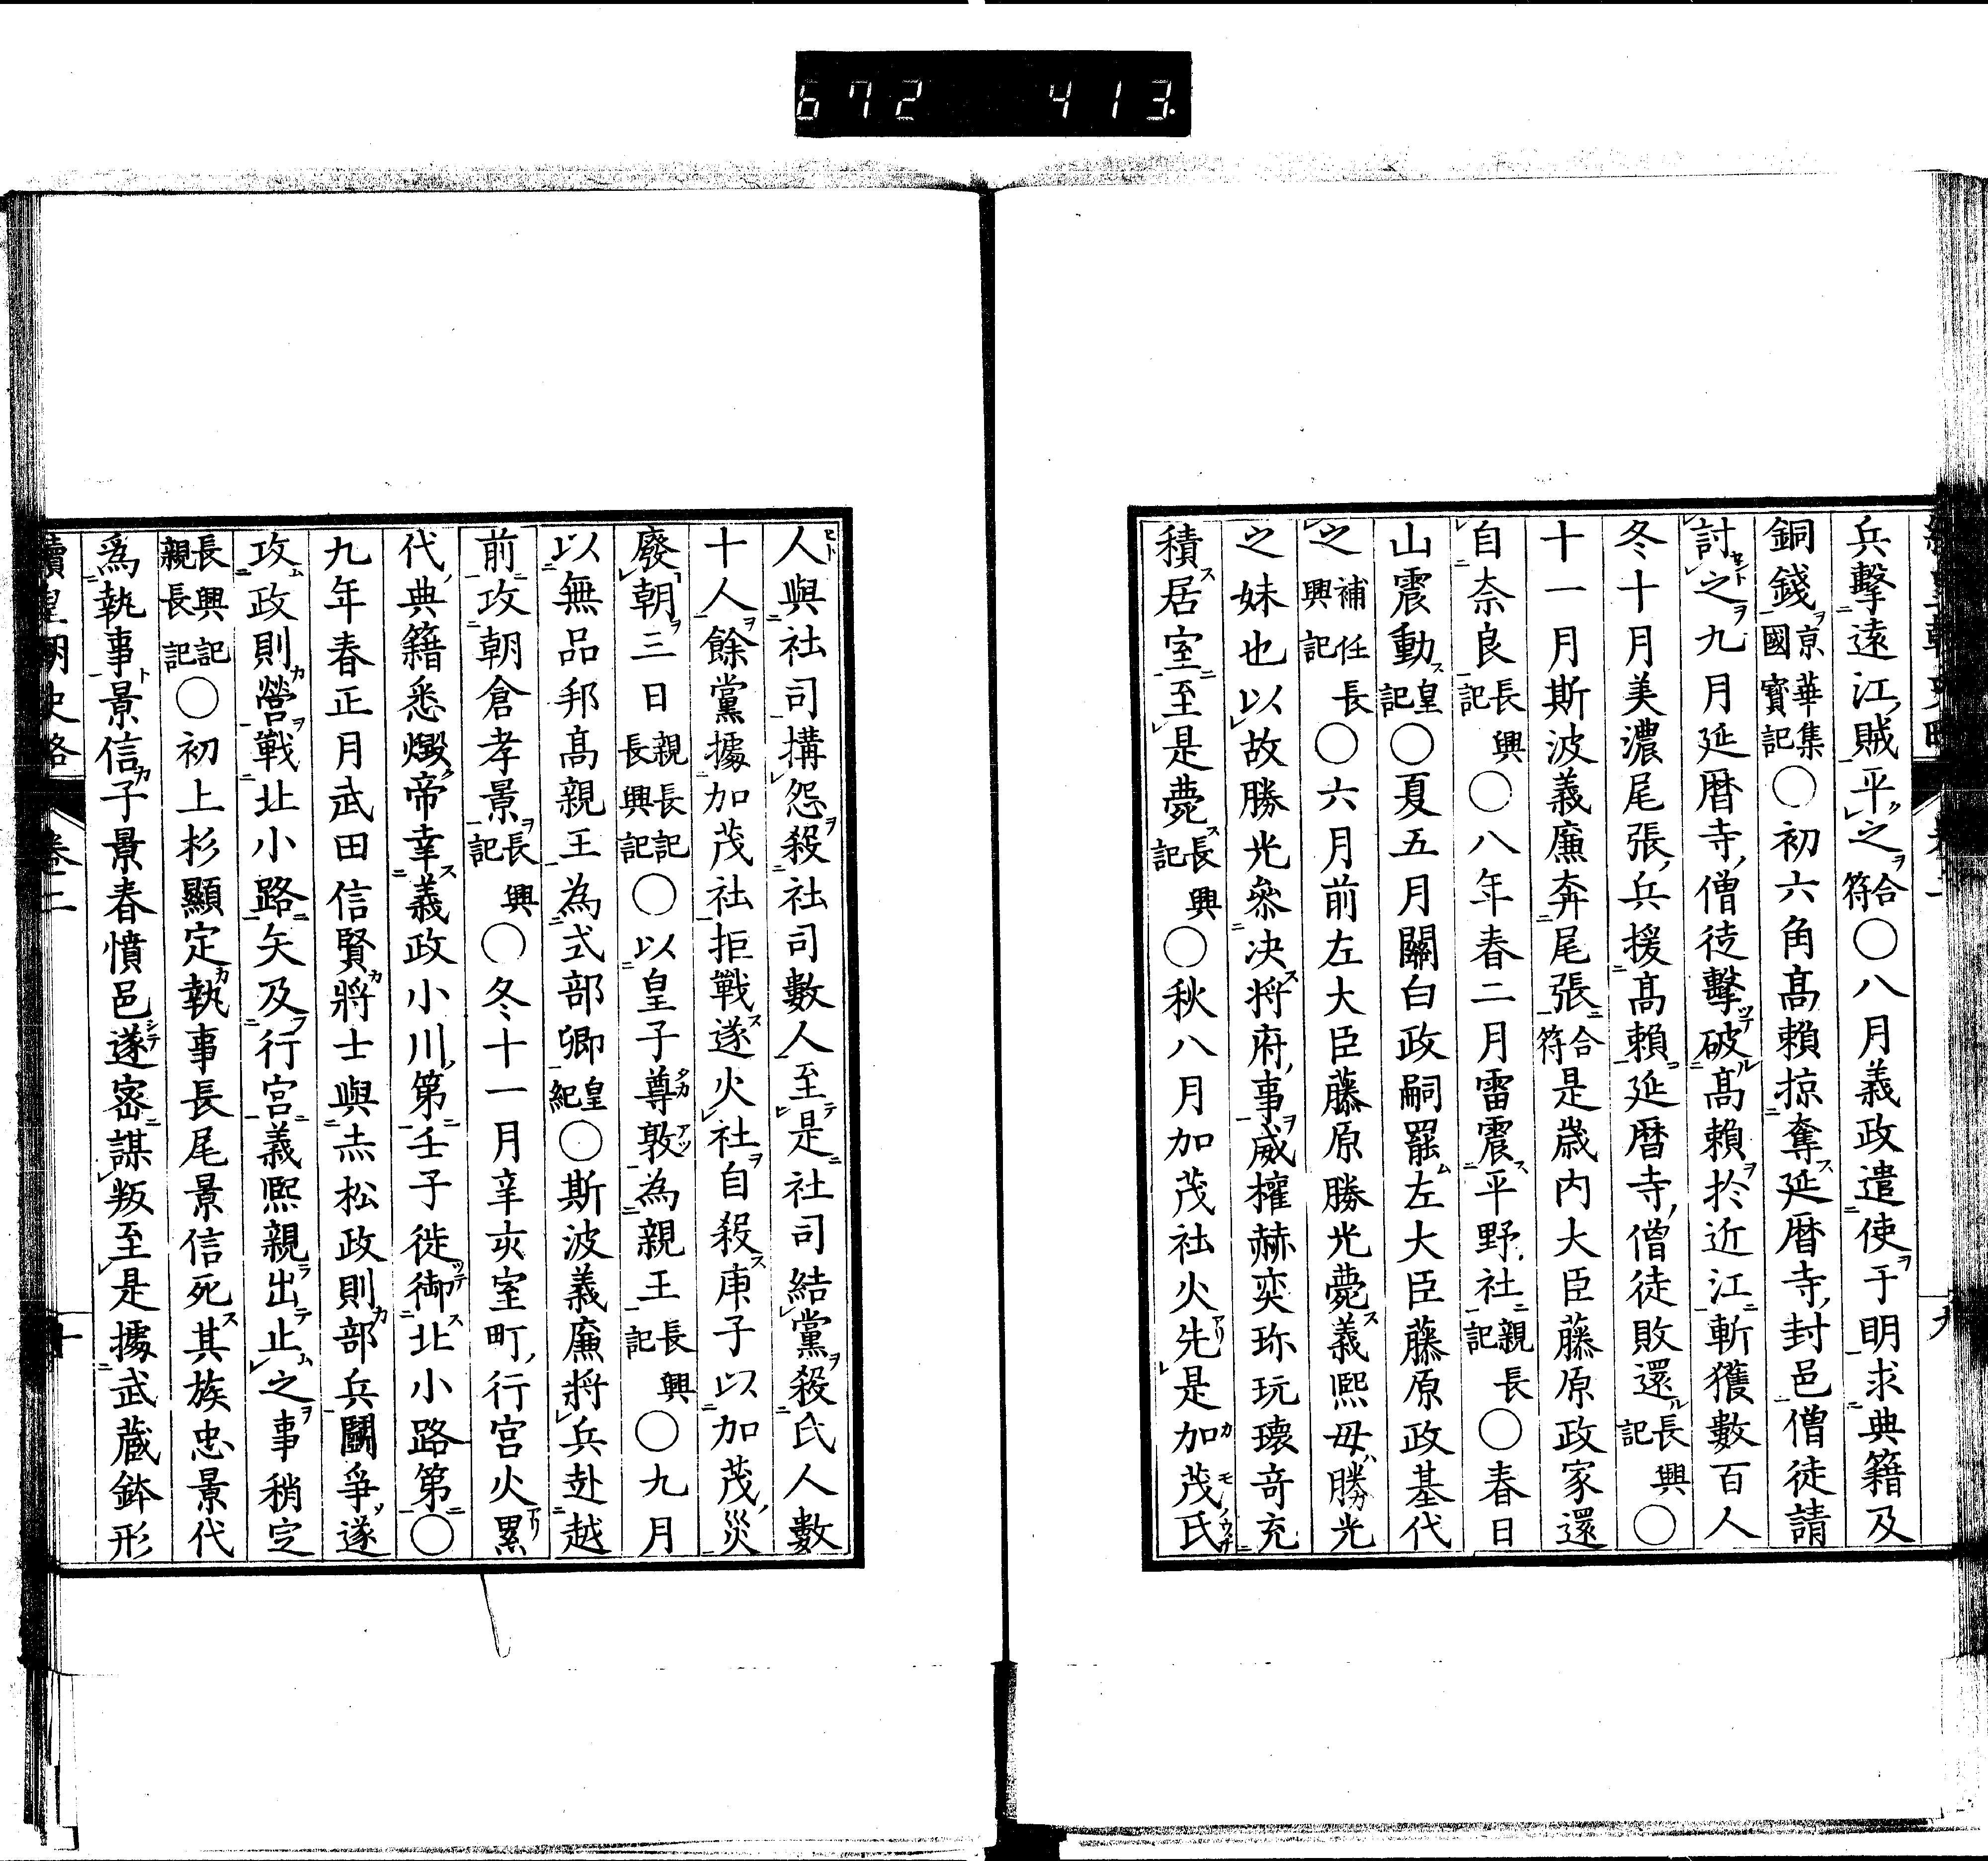 672 413
兵擊遠江賊平之合符〇八月義政遣使于明求典籍及
銅錢京華集國寶記〇初六角髙賴掠奪延暦寺封邑僧徒請
討之九月延暦寺僧徒擊破髙賴於近江斬獲數百人
冬十月美濃尾張兵援髙賴延暦寺僧徒敗還長興記〇
十一月斯波義廉奔尾張合符是歳内大臣藤原政家還
自奈良長興記〇八年春二月雷震平野社親長記〇春日
山震動皇記〇夏五月關白政嗣罷左大臣藤原政基代
之補任長興記〇六月前左大臣藤原勝光薨義熙母勝光
之妹也以故勝光叅决将府事威權赫奕珎玩瓌竒充
積居室至是薨長興記〇秋八月加茂社火先是加茂氏
人與社司搆怨殺社司數人至是社司結黨殺氏人數
十人餘黨據加茂社拒戰遂火社自殺庚子以加茂災
廢朝三日親長記長興記〇以皇子尊敦為親王長興記〇九月
以無品邦髙親王為式部卿皇紀〇斯波義廉將兵赴越
前攻朝倉孝景長興記〇冬十一月辛亥室町行宮火累
代典籍悉燬帝幸義政小川第壬子徙御北小路第〇
九年春正月武田信賢將士與赤松政則部兵鬪爭遂
攻政則營戰北小路矢及行宮義熙親出止之事稍定
長興記親長記〇初上杉顯定執事長尾景信死其族忠景代
爲執事景信子景春憤邑遂密謀叛至是據武蔵鉢形
續皇朝史略 卷二